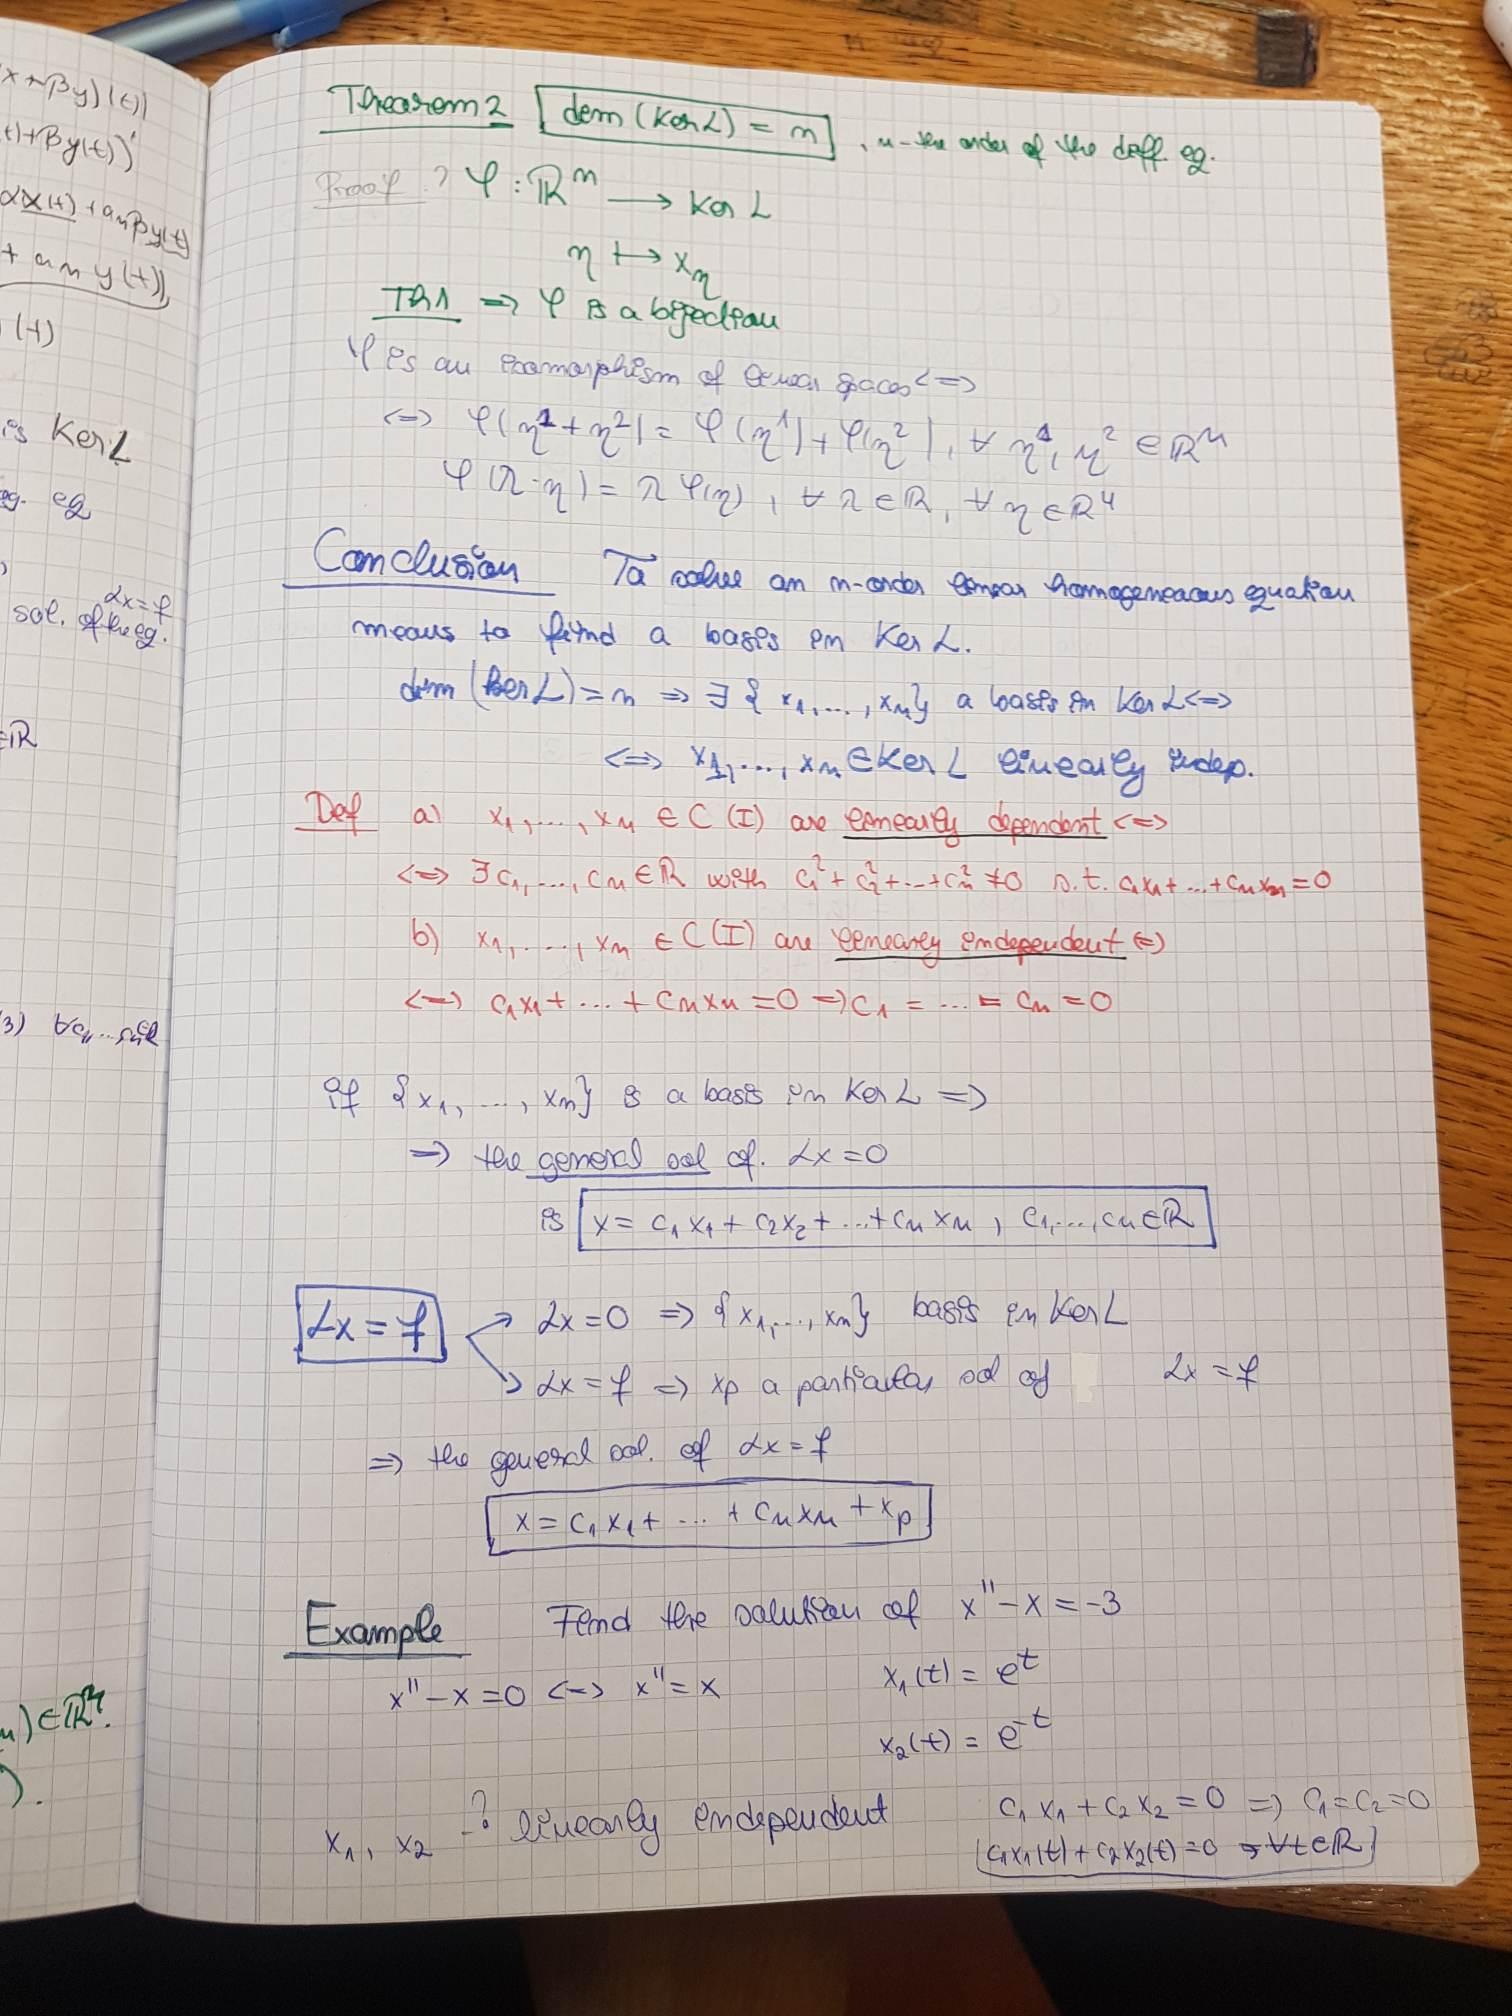 x+βy)(t))
t)+βy(t))'
αx(t) + an βy(t)
+ an y(t))
(t)
is Ker L
eq. eq
Lx=f
sol. of the eq.
∈ℝ
3) ∀c1,...,cn∈ℝ
n)∈ℝⁿ.
).
Theorem 2 dim(Ker L) = n, n-the order of the diff. eq.
Proof ? φ : ℝⁿ → Ker L
η ↦ x_η
Th1 ⇒ φ is a bijection
φ is an isomorphism of linear spaces <=>
<=> φ(η¹+η²) = φ(η¹)+φ(η²), ∀ η¹, η² ∈ ℝⁿ
φ(λ·η) = λ φ(η), ∀ λ ∈ ℝ, ∀ η ∈ ℝⁿ
Conclusion To solve an n-order linear homogeneous equation
means to find a basis in Ker L.
dim (Ker L) = n => ∃ {x₁,...,xₙ} a basis in Ker L <=>
<=> x₁,...,xₙ ∈ Ker L linearly indep.
Def a) x₁,...,xₙ ∈ C(I) are linearly dependent <=>
<=> ∃ c₁,...,cₙ ∈ ℝ with c₁² + c₂² + ... + cₙ² ≠ 0 s.t. c₁x₁ + ... + cₙxₙ = 0
b) x₁,...,xₙ ∈ C(I) are linearly independent <=>
<=> c₁x₁ + ... + cₙxₙ = 0 => c₁ = ... = cₙ = 0
if {x₁, ..., xₙ} is a basis in Ker L =>
=> the general sol of. Lx = 0
is x = c₁x₁ + c₂x₂ + ... + cₙxₙ, c₁,...,cₙ ∈ ℝ
Lx = f → Lx = 0 => {x₁,...,xₙ} basis in Ker L
→ Lx = f => xp a particular sol of Lx = f
=> the general sol. of Lx = f
x = c₁x₁ + ... + cₙxₙ + xp
Example Find the solution of x'' - x = -3
x'' - x = 0 <=> x'' = x x₁(t) = e^t
x₂(t) = e^-t
x₁, x₂ -? linearly independent c₁x₁ + c₂x₂ = 0 => c₁ = c₂ = 0
c₁x₁(t) + c₂x₂(t) = 0, ∀t∈ℝ